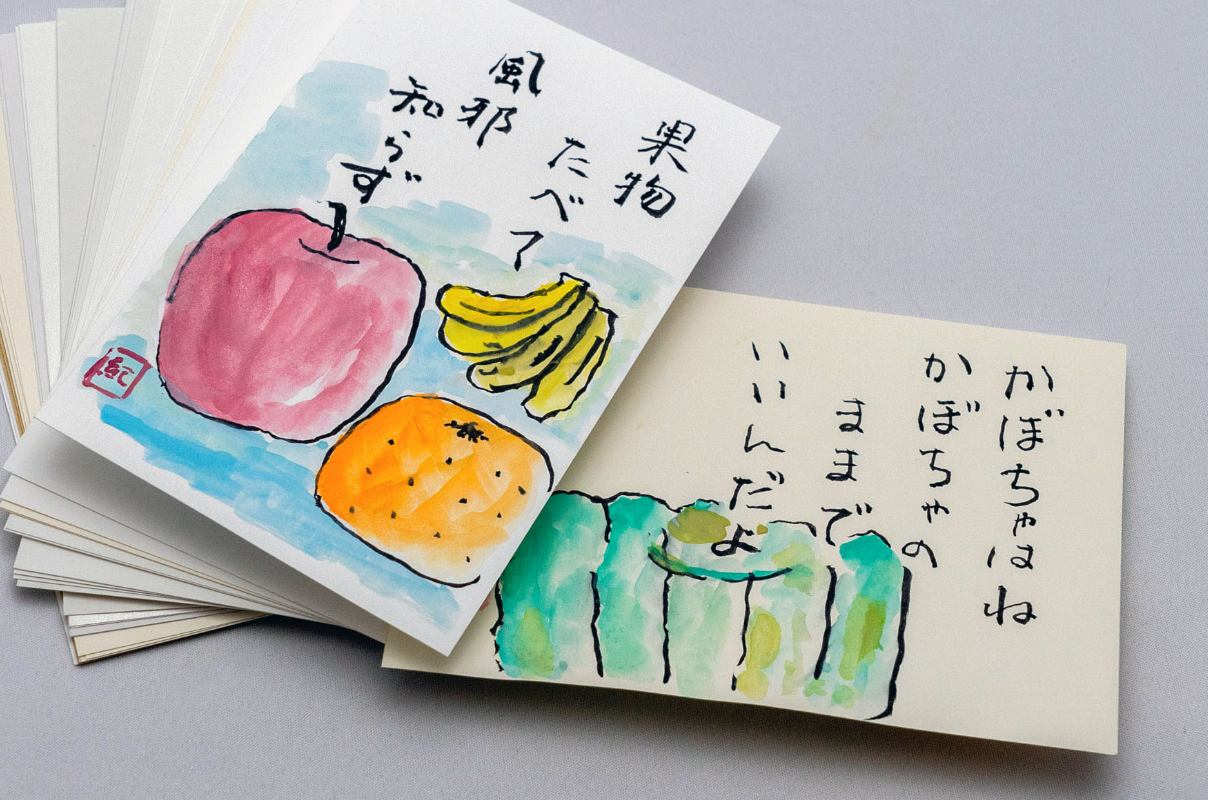 果物
たべて
風邪
知らず
かぼちゃはね
かぼちゃの
ままで
いいんだよ